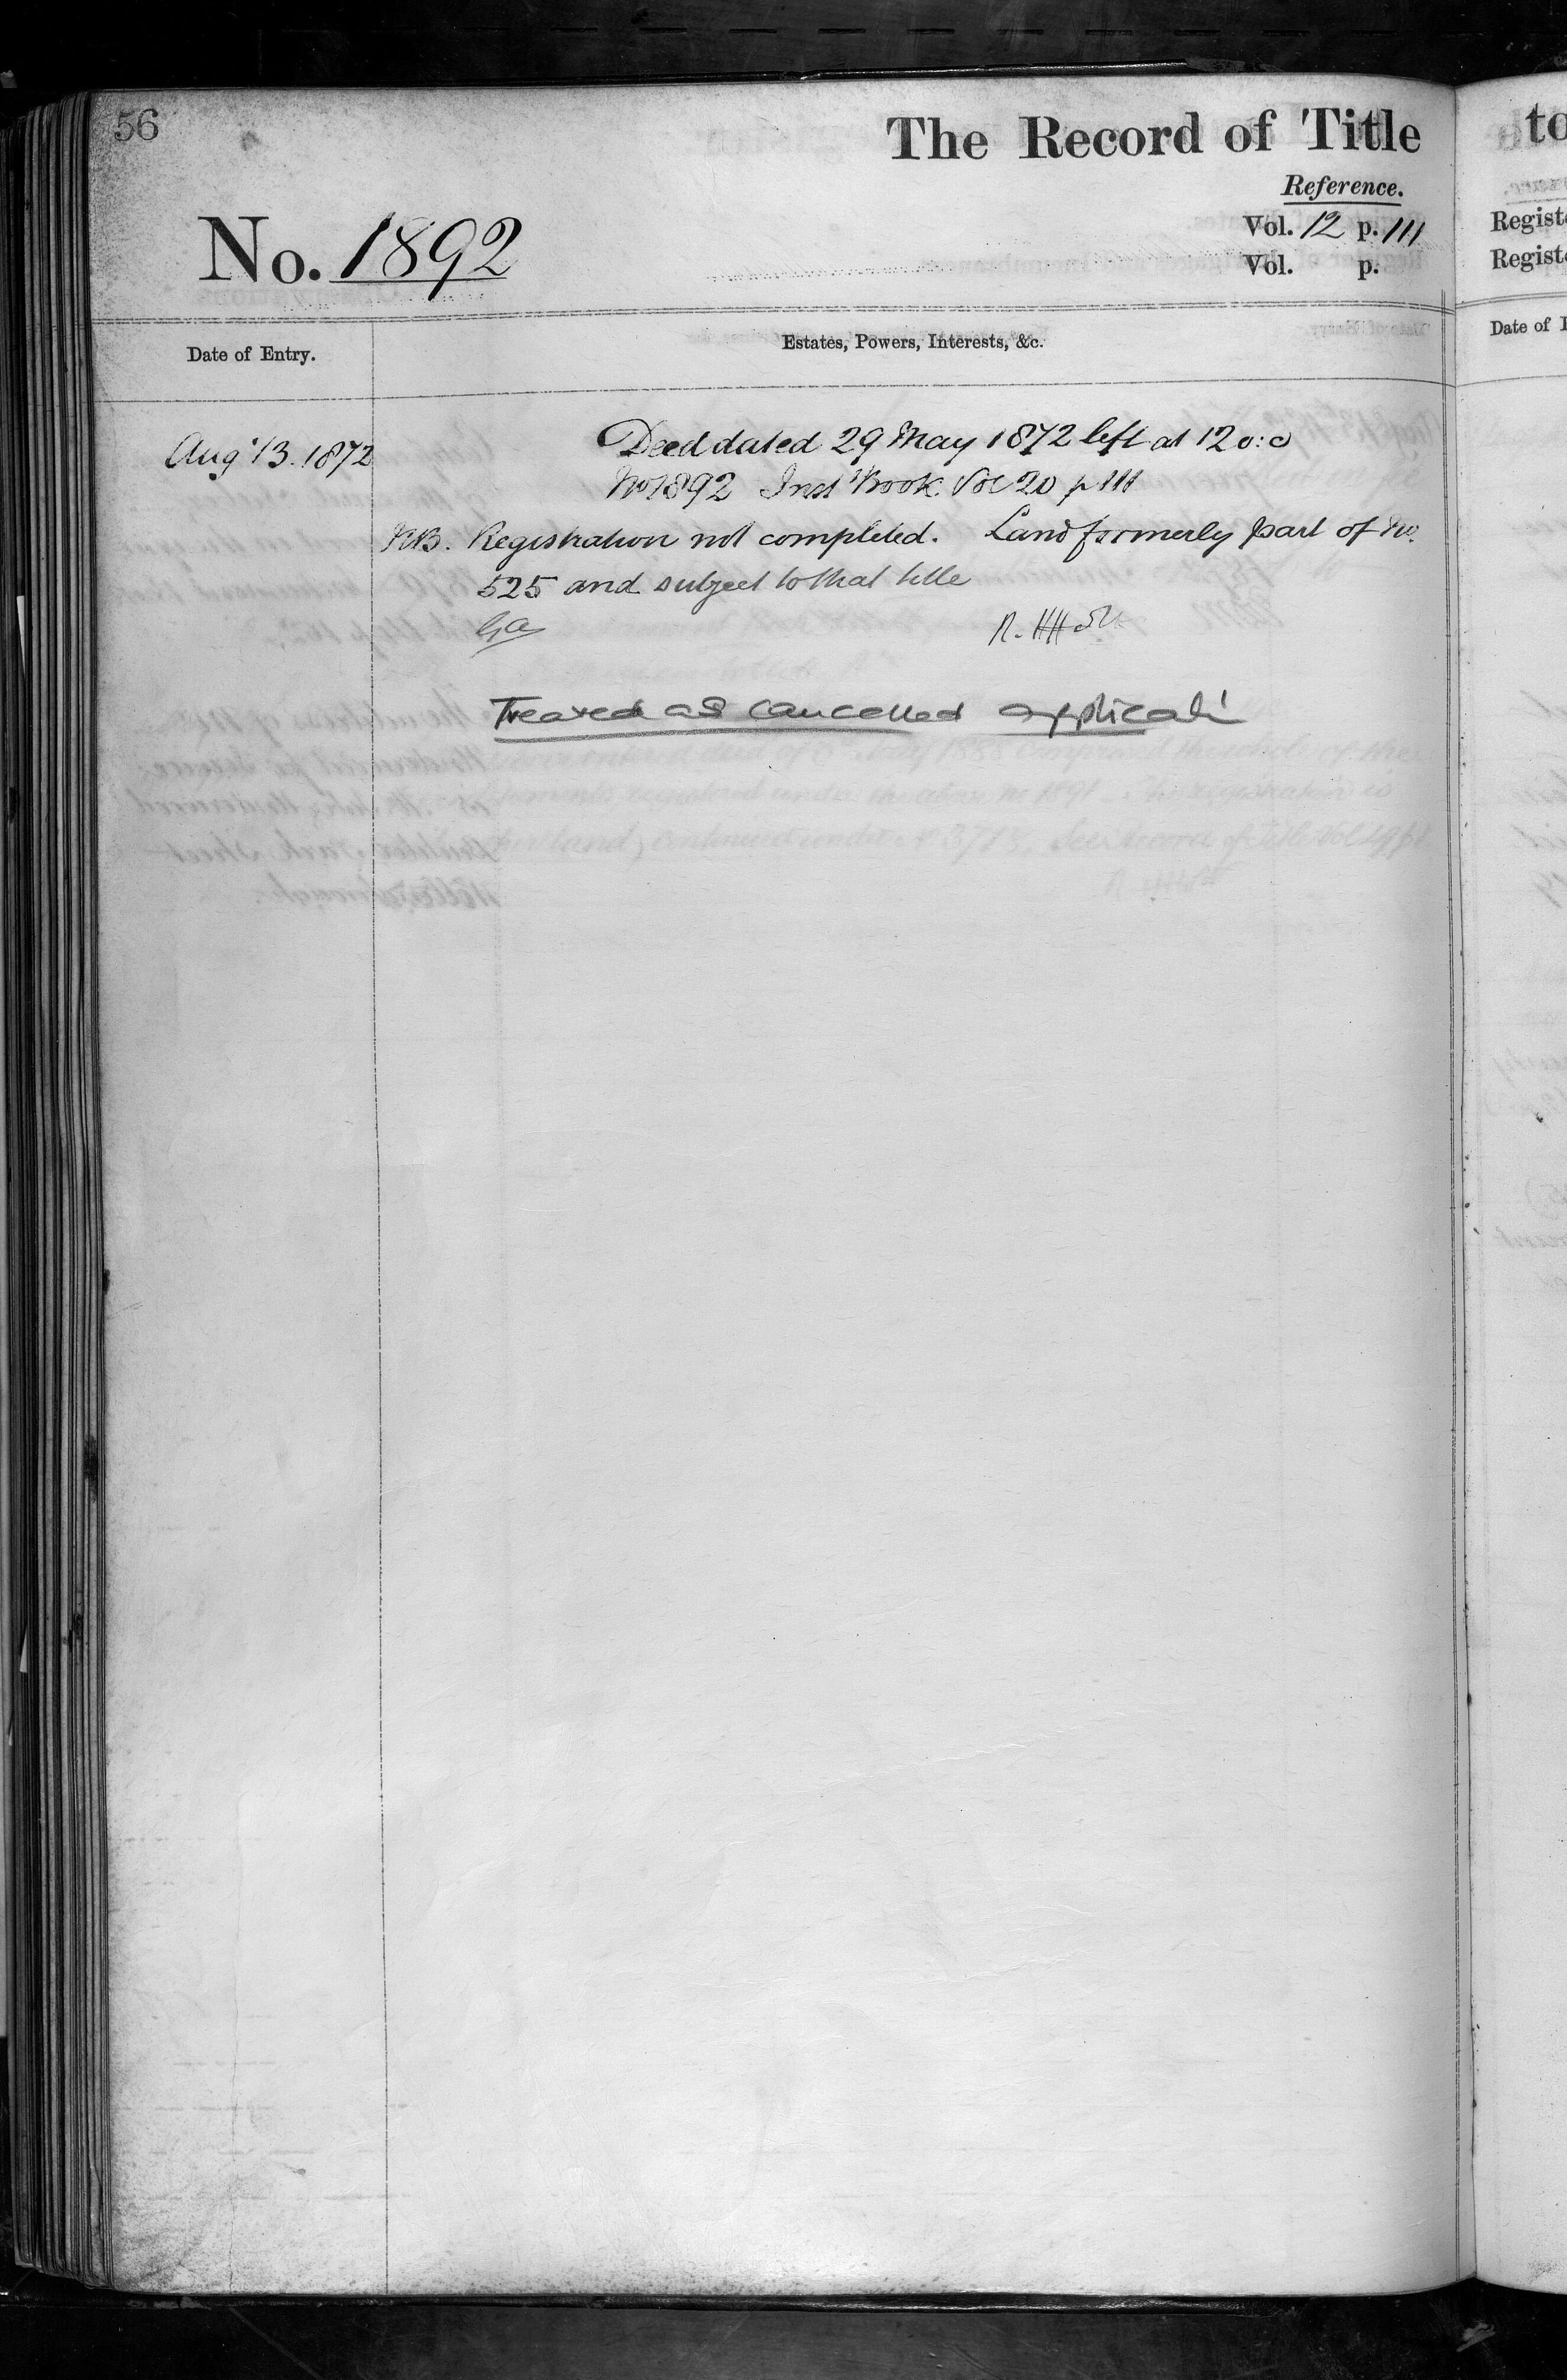 56
The Record of Title
Reference.
No. 1892
Vol. 12 p. 111
Vol. p.
Date of Entry.
Estates, Powers, Interests, &c.
Aug' 13. 1872
Deed dated 29 May 1872 left at 12 o:c
No 1892 Inst Book Vol 20 p 111
NB. Registration not completed. Land formerly part of No.
525 and subject to that title
Treated as cancelled applicati'
to
Regist
Regist
Date of